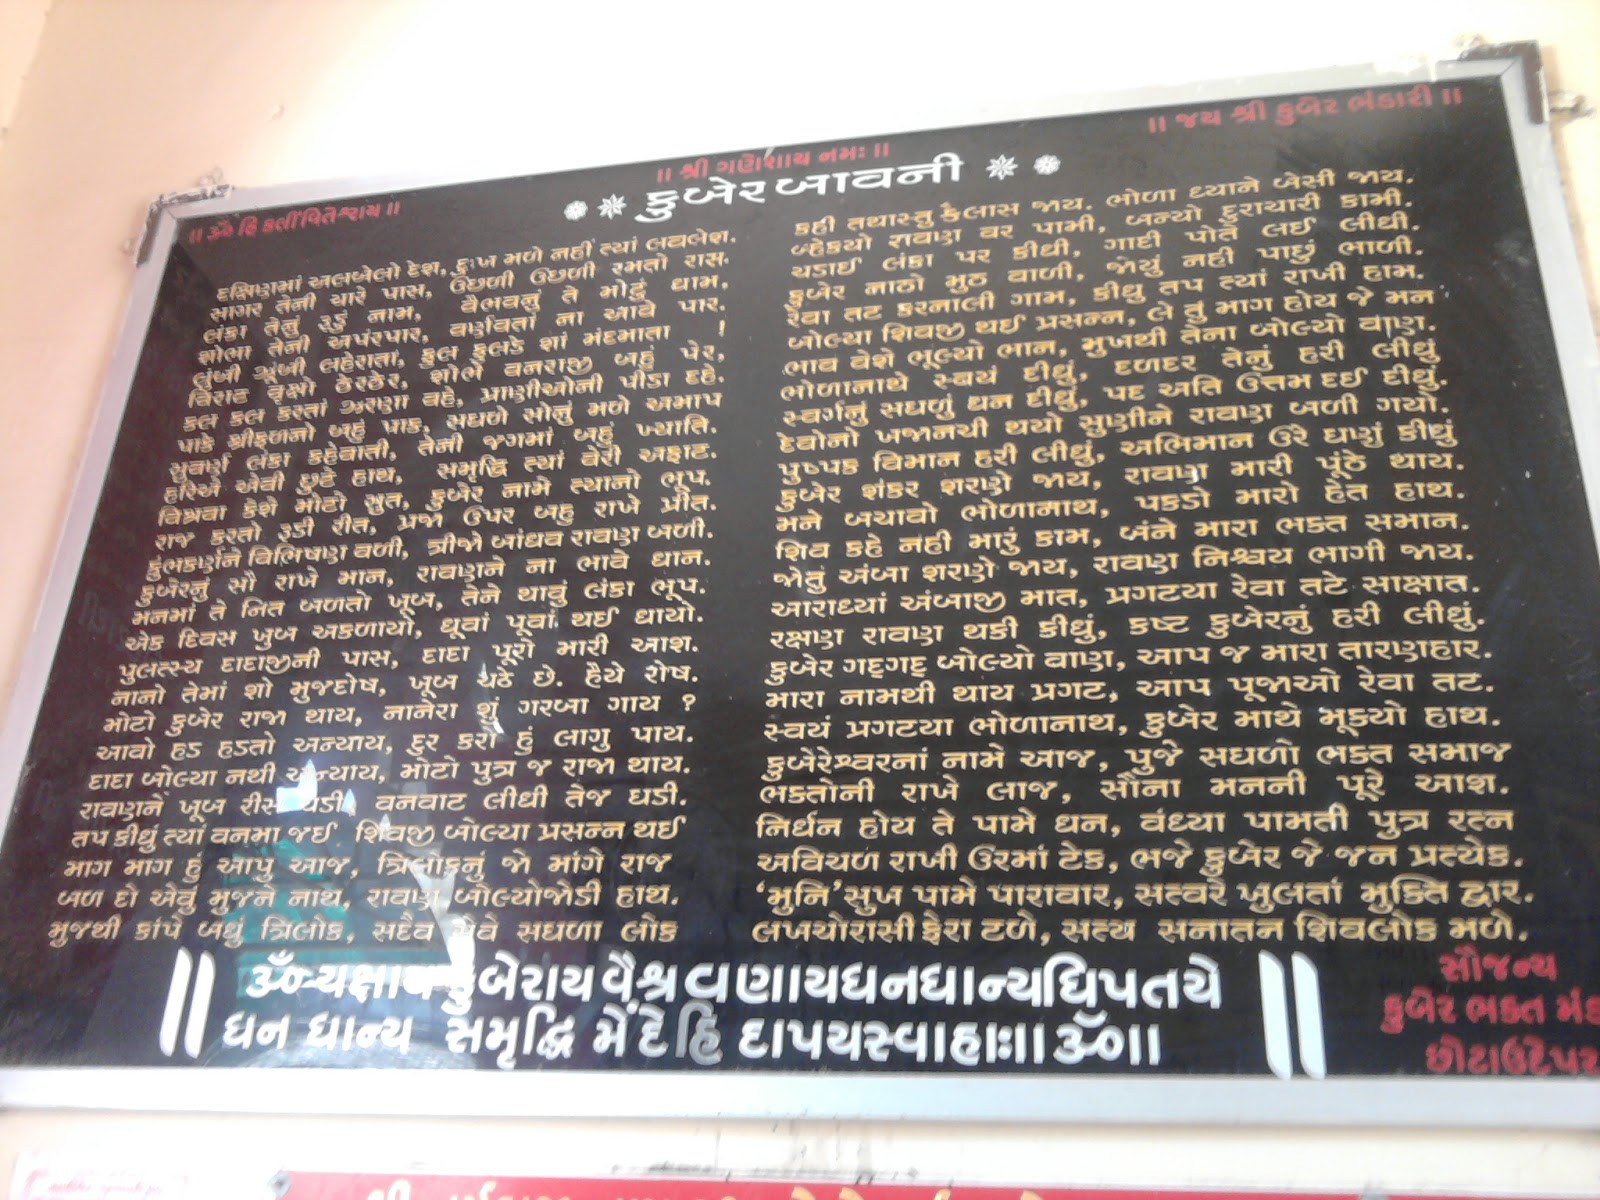 ॥ જય શ્રી કુબેર ભંડારી ॥
॥ શ્રી ગણેશાય નમઃ ॥
કુબેર બાવની
દક્ષિણમાં અલબેલો દેશ, દુઃખ મળે નહીં ત્યાં લવલેશ.
સાગર તેની ચારે પાસ, ઉછળી ઉછળી રમતો રાસ.
લંકા તેનું રૂડું નામ, વૈભવનું તે મોટું ધામ.
શોભા તેની અપરંપાર, વર્ણવતાં ના આવે પાર.
લુંબી ઝુંબી લહેરાતા, ફુલ ફુલડે શાં મંદમાતા !
વિરાટ વૃક્ષો ઠેરઠેર, શોભે વનરાજી બહુ પેર,
કલ કલ કરતાં ઝરણા વહે, પ્રાણીઓની પીડા દહે.
પાકે શ્રીફળનો બહુ પાક, સઘળે સોનું મળે અમાપ
સુવર્ણ લંકા કહેવાતી, તેની જગમાં બહુ ખ્યાતિ.
હરિએ એની છુટે હાથ, સમૃદ્ધિ ત્યાં વેરી અફાટ.
વિશ્રવા કેશે મોટો સુત, કુબેર નામે ત્યાનો ભૂપ.
રાજ કરતો રૂડી રીત, પ્રજા ઉપર બહુ રાખે પ્રીત.
કુંભકર્ણને વિભિષણ વળી, ત્રીજો બાંધવ રાવણ બળી.
કુબેરનું સૌ રાખે માન, રાવણને ના ભાવે ધાન.
મનમાં તે નિત બળતો ખૂબ, તેને થાવું લંકા ભૂપ.
એક દિવસ ખુબ અકળાયો, ધૂવાં પૂવાં થઈ ધાયો.
પુલત્સ્ય દાદાજીની પાસ, દાદા પૂરો મારી આશ.
નાનો તેમાં શો મુજદોષ, ખૂબ ચઢે છે. હૈયે રોષ.
મોટો કુબેર રાજા થાય, નાનેરા શું ગરબા ગાય ?
આવો હડ હડતો અન્યાય, દુર કરો હું લાગુ પાય.
દાદા બોલ્યા નથી અન્યાય, મોટો પુત્ર જ રાજા થાય.
રાવણને ખૂબ રીસ ચડી, વનવાટ લીધી તેજ ઘડી.
તપ કીધું ત્યાં વનમા જઈ શિવજી બોલ્યા પ્રસન્ન થઈ
માગ માગ હું આપુ આજ, ત્રિલોકનું જો માંગે રાજ
બળ દો એવું મુજને નાથ, રાવણ બોલ્યોજોડી હાથ.
મુજથી કાંપે બધું ત્રિલોક, સદૈવ સેવે સઘળા લોક
કહી તથાસ્તુ કૈલાસ જાય. ભોળા ધ્યાને બેસી જાય.
બ્હેક્યો રાવણ વર પામી, બન્યો દુરાચારી કામી.
ચડાઈ લંકા પર કીધી, ગાદી પોતે લઈ લીધી.
કુબેર નાઠો મુઠ વાળી, જોયું નહી પાછું ભાળી.
રેવા તટ કરનાળી ગામ, કીધુ તપ ત્યાં રાખી હામ.
બોલ્યા શિવજી થઈ પ્રસન્ન, લે તું માગ હોય જે મન
ભાવ વેશે ભૂલ્યો ભાન, મુખથી તેના બોલ્યો વાણ.
ભોળાનાથે સ્વયં દીધું, દળદર તેનું હરી લીધું
સ્વર્ગનું સઘળું ધન દીધું, પદ અતિ ઉત્તમ દઈ દીધું.
દેવોનો ખજાનચી થયો સુણીને રાવણ બળી ગયો.
પુષ્પક વિમાન હરી લીધું, અભિમાન ઉરે ઘણું કીધું
કુબેર શંકર શરણે જાય, રાવણ મારી પૂંઠે થાય.
મને બચાવો ભોળાનાથ, પકડો મારો હેત હાથ.
શિવ કહે નહી મારું કામ, બંને મારા ભક્ત સમાન.
જોતું અંબા શરણે જાય, રાવણ નિશ્ચય ભાગી જાય.
આરાધ્યાં અંબાજી માત, પ્રગટયા રેવા તટે સાક્ષાત.
રક્ષણ રાવણ થકી કીધું, કષ્ટ કુબેરનું હરી લીધું.
કુબેર ગદ્ગદ્ બોલ્યો વાણ, આપ જ મારા તારણહાર.
મારા નામથી થાય પ્રગટ, આપ પૂજાઓ રેવા તટ.
સ્વયં પ્રગટયા ભોળાનાથ, કુબેર માથે મૂક્યો હાથ.
કુબેરેશ્વરનાં નામે આજ, પુજે સઘળો ભક્ત સમાજ
ભક્તોની રાખે લાજ, સૌના મનની પૂરે આશ.
નિર્ધન હોય તે પામે ધન, વંધ્યા પામતી પુત્ર રત્ન
અવિચળ રાખી ઉરમાં ટેક, ભજે કુબેર જે જન પ્રત્યેક.
'મુનિ' સુખ પામે પારાવાર, સત્વરે ખુલતાં મુક્તિ દ્વાર.
લખચોરાસી ફેરા ટળે, સત્ય સનાતન શિવલોક મળે.
॥ ૐ યક્ષાય કુબેરાય વૈશ્રવણાય ધનધાન્યધિપતયે
ધન ધાન્ય સમૃદ્ધિ મેં દેહિ દાપયસ્વાહાઃ॥ ૐ॥ ॥
સૌજન્ય
કુબેર ભક્ત